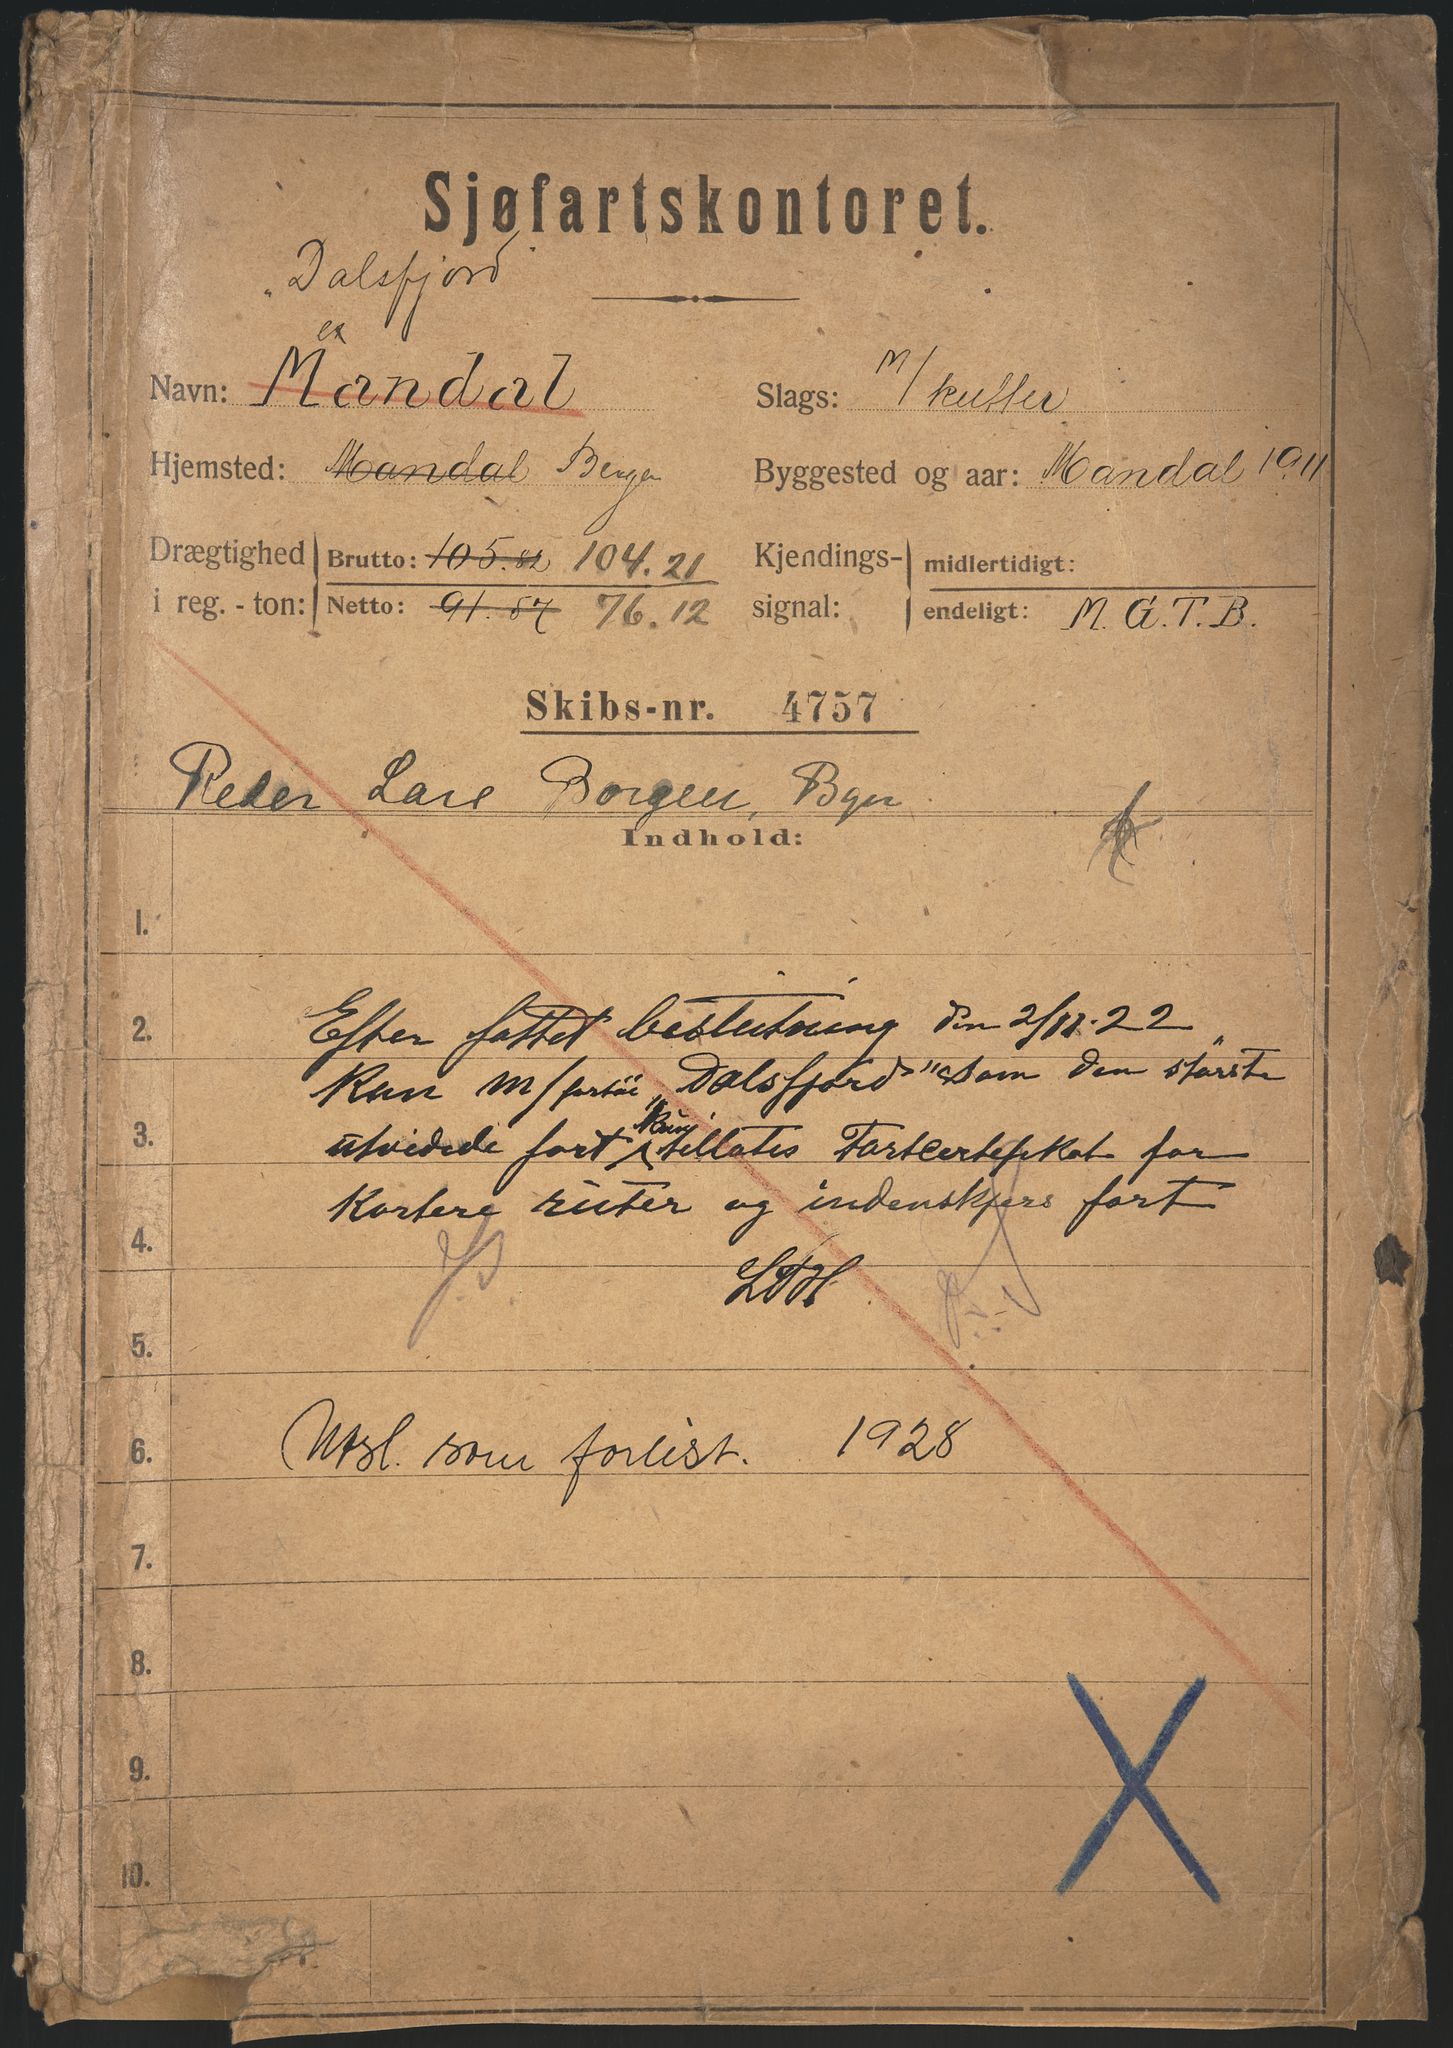 Sjøfartskontoret.
"Dalsfjord"
ex
Navn: Mandal Slags: M/kutter
Hjemsted: Mandal Bergen Byggested og aar: Mandal 1911
Drægtighed Brutto: 105.82 104.21 Kjendings- midlertidigt:
i reg.-ton: Netto: 91.57 76.12 signal: endeligt: M.G.T.B.
Skibs-nr. 4757
Reder Lars Borgen, Bgen
Indhold:
1.
2. Efter fattet beslutning den 2/11.22
Kan m/fartöi "Dalsfjord" som den störste
3. utvidede fart kun tillates Fartcertifikat for
Kortere ruter og indenskjers fart
4.
5.
6. Utsl. som forlist. 1928
7.
8.
9.
10.